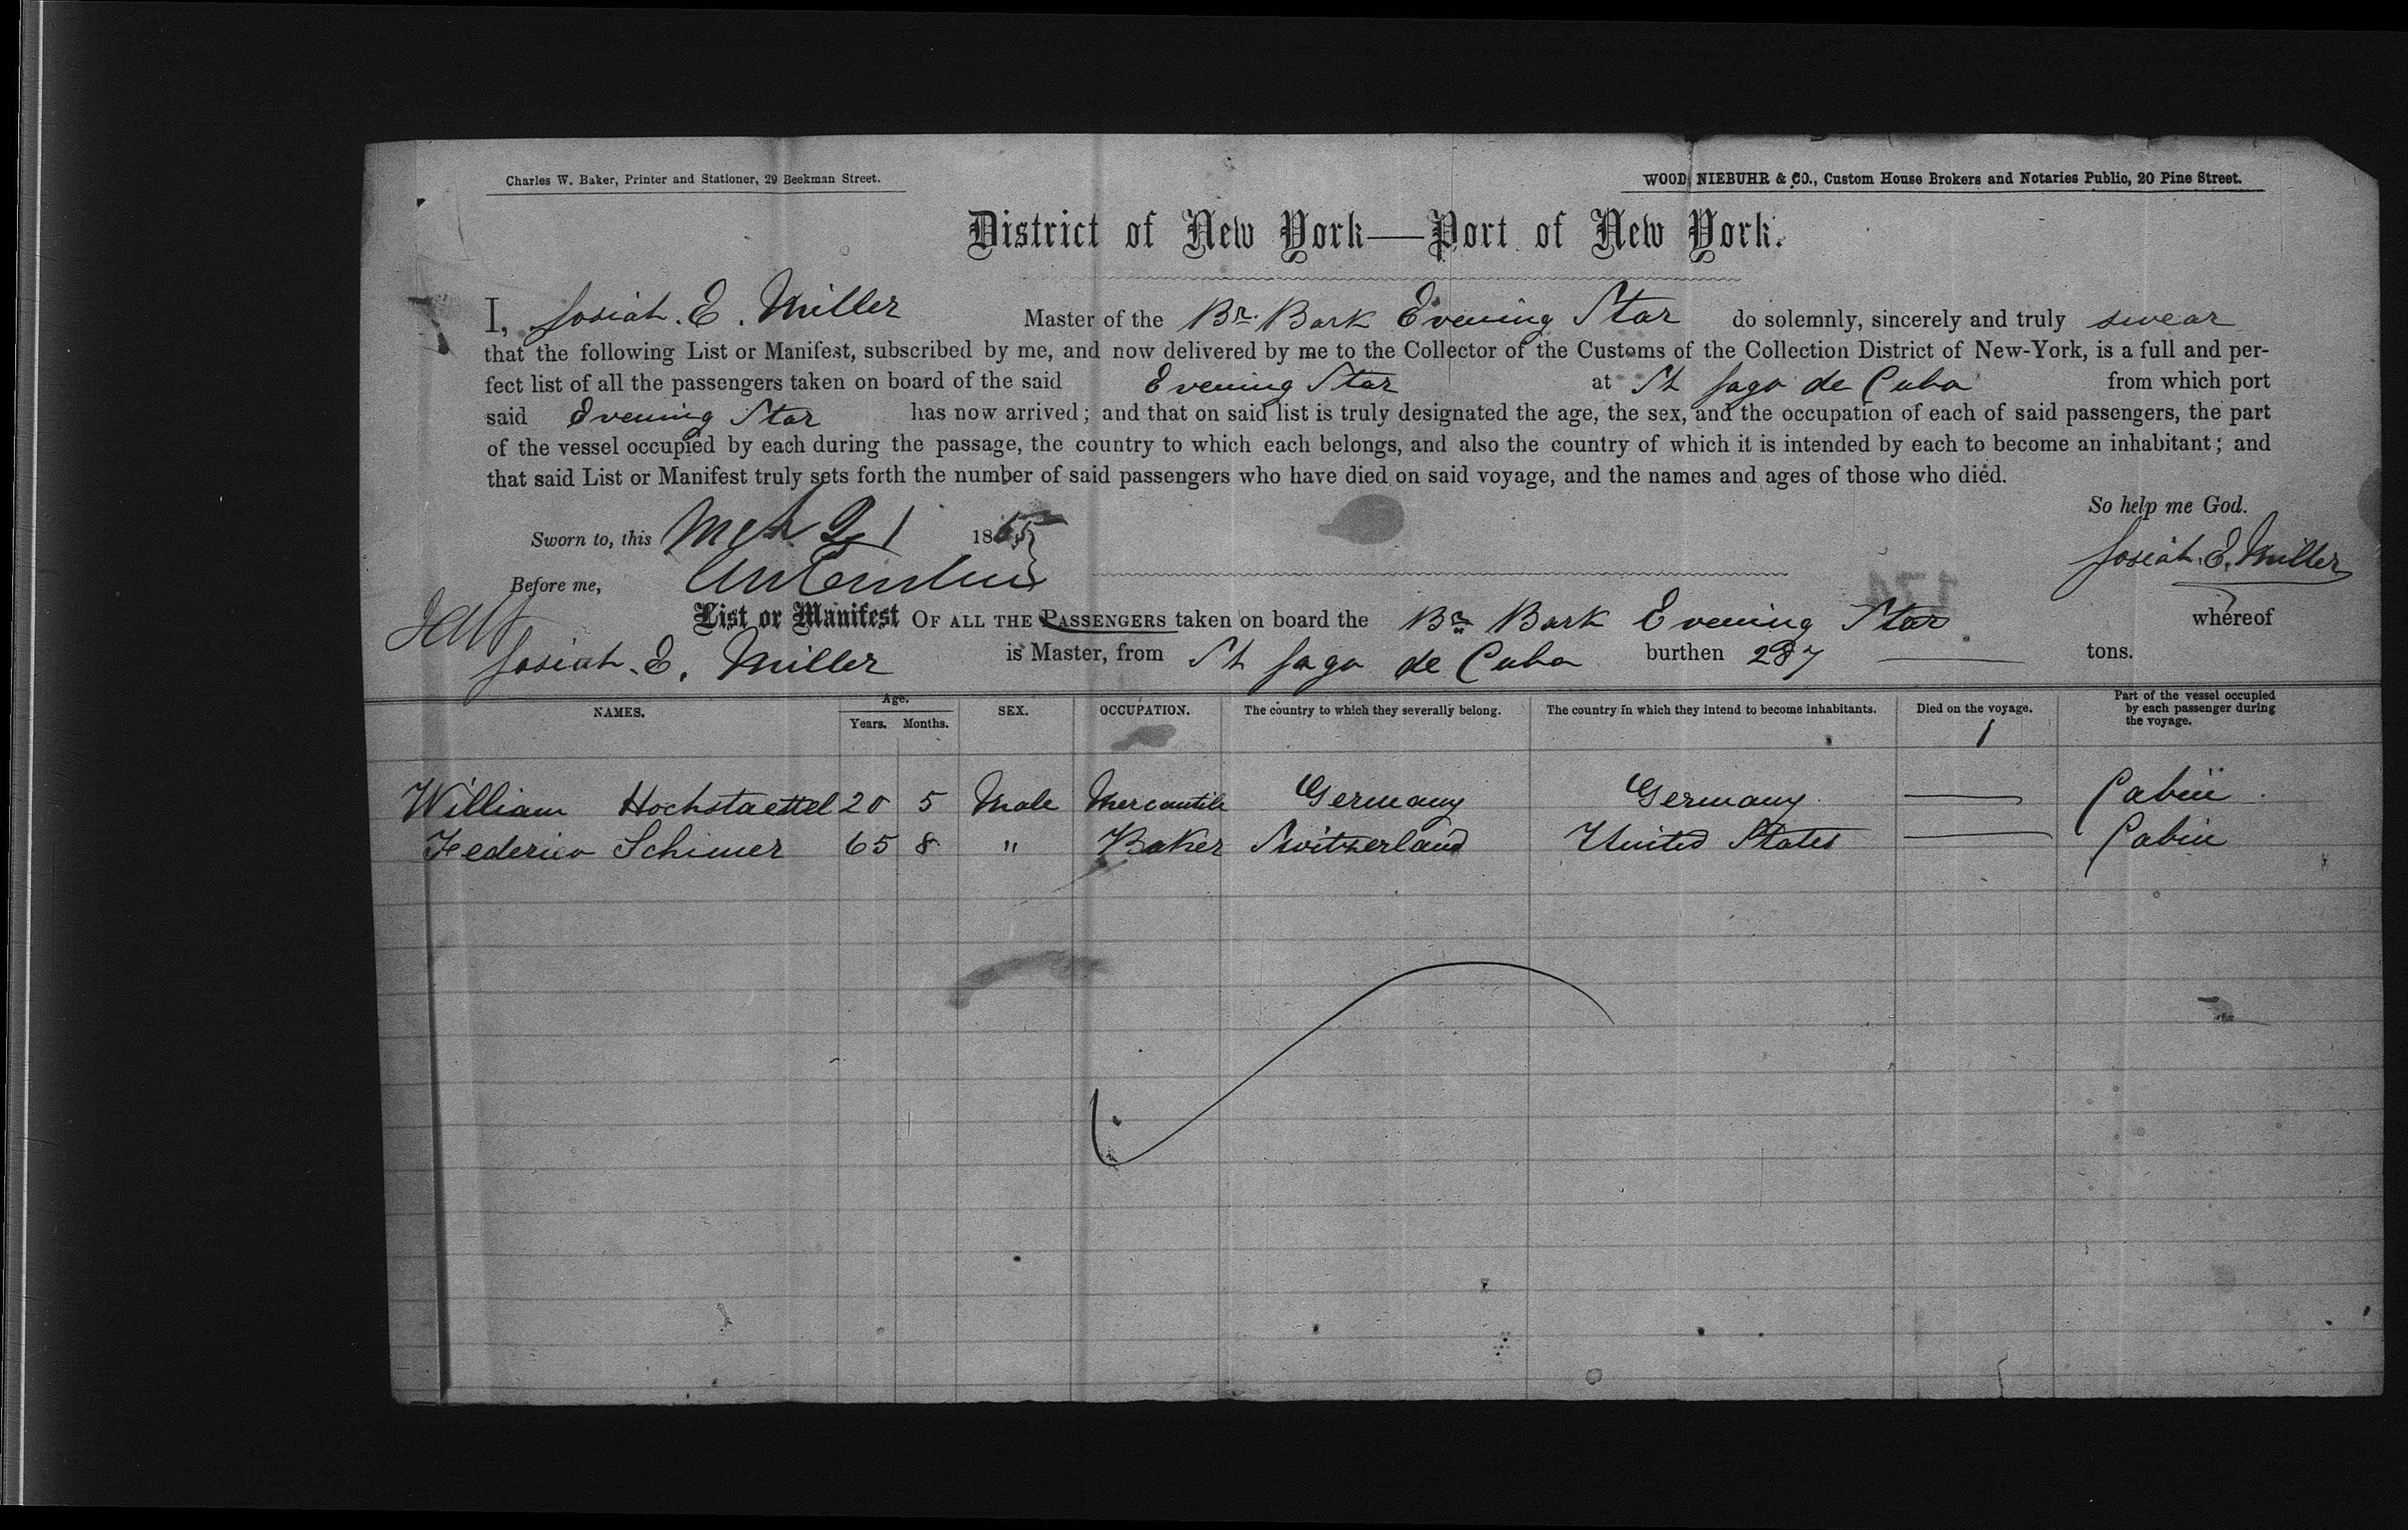 Charles W. Baker, Printer and Stationer, 29 Beekman Street.
WOOD, NIEBUHR & CO., Custom House Brokers and Notaries Public, 20 Pine Street.
District of New York—Port of New York.
I, Josiah. E. Miller Master of the Br. Bark Evening Star do solemnly, sincerely and truly swear
that the following List or Manifest, subscribed by me, and now delivered by me to the Collector of the Customs of the Collection District of New-York, is a full and per-
fect list of all the passengers taken on board of the said Evening Star at St Jago de Cuba from which port
said Evening Star has now arrived; and that on said list is truly designated the age, the sex, and the occupation of each of said passengers, the part
of the vessel occupied by each during the passage, the country to which each belongs, and also the country of which it is intended by each to become an inhabitant; and
that said List or Manifest truly sets forth the number of said passengers who have died on said voyage, and the names and ages of those who died.
So help me God.
Sworn to, this Mch 21 1865
Josiah. E. Miller
Before me,
List or Manifest OF ALL THE PASSENGERS taken on board the Br Bark Evening Star whereof
Josiah. E. Miller is Master, from St Jago de Cuba burthen 287 tons.
NAMES. Age. Years. Months. SEX. OCCUPATION. The country to which they severally belong. The country in which they intend to become inhabitants. Died on the voyage. Part of the vessel occupied by each passenger during the voyage.
William Hochstaettel 20 5 Male Mercantile Germany Germany — Cabin
Federico Schimer 65 8 " Baker Switzerland United States — Cabin